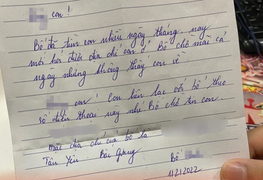 con !
Bố đã tìm con nhiều ngày tháng.. nay
mới hỏi được địa chỉ con ở. Bố chờ mãi cả
ngày nhưng không thấy con về
con ! Con liên lạc với bố theo
số điện thoại này nhé Bố chờ tin con.
địa chỉ của bố là
Tân Yên Bắc Giang
Bố
11/2/2022